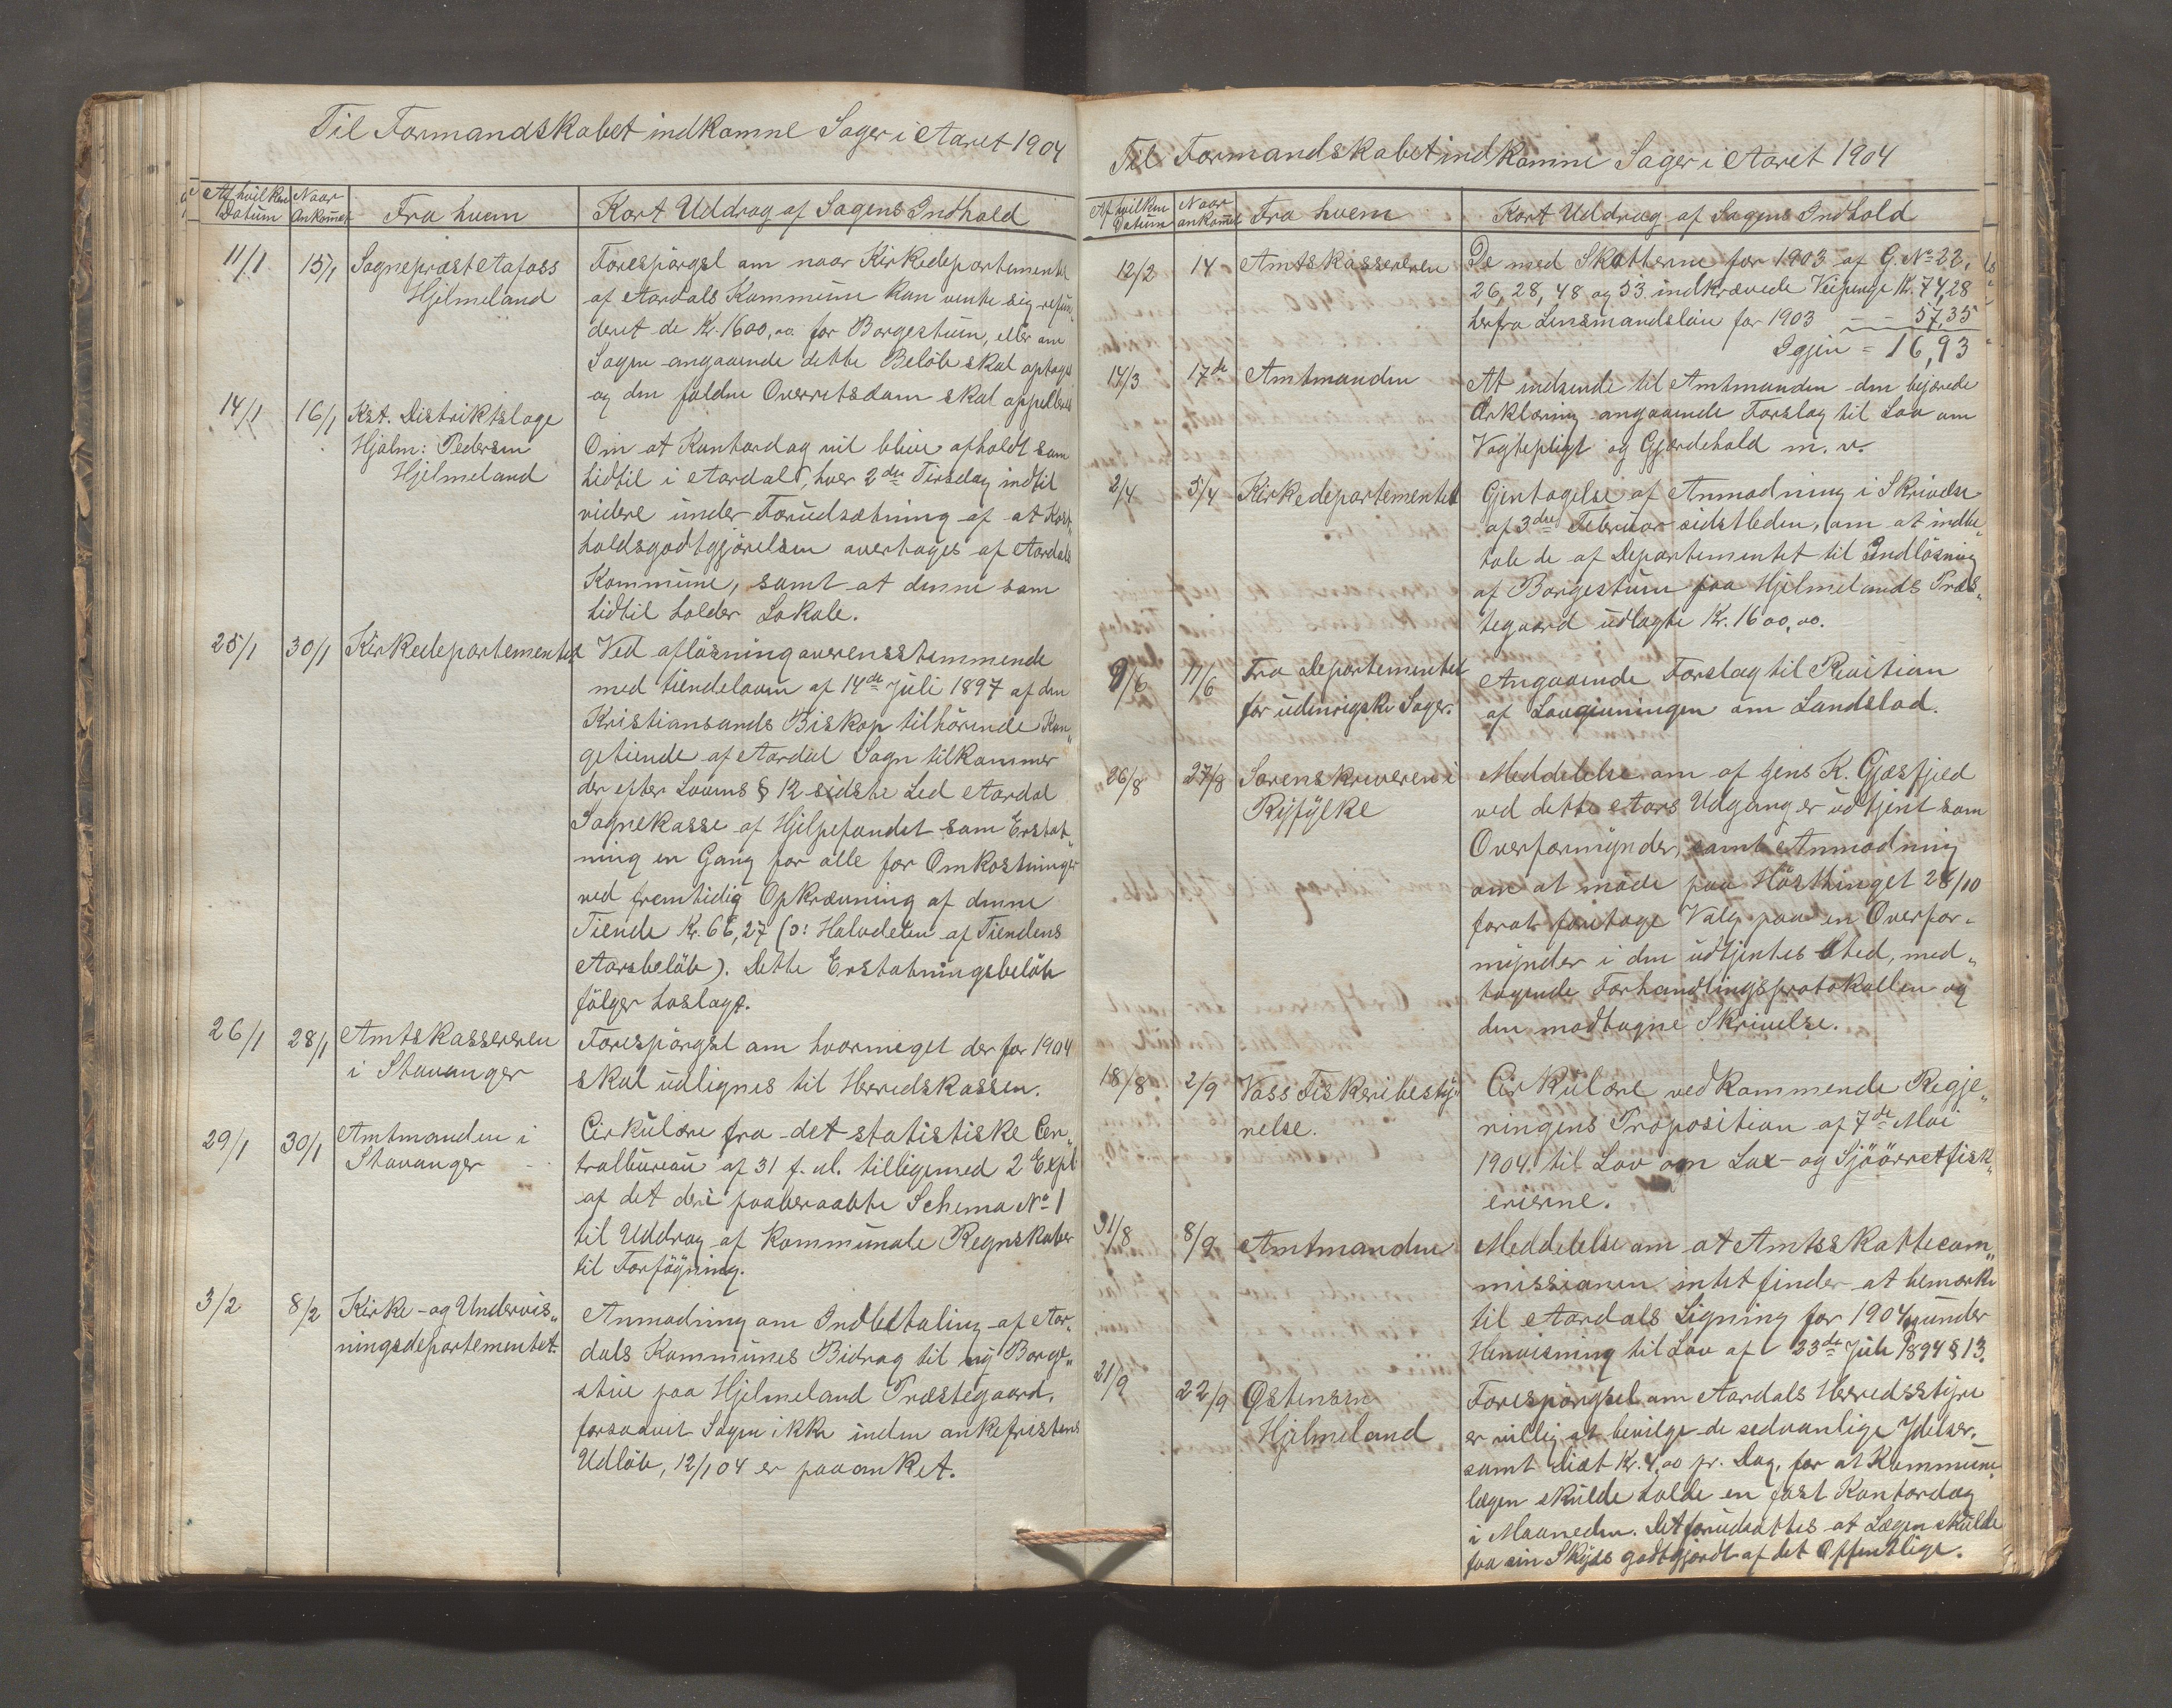 Til Formandskabet indkomne Sager i Aaret 1904
Af hvilken Datum
Naar Ankommet
Fra hvem
Kort Uddrag af Sagens Indhold
11/1
15/1
Sognepræst Aafoss
Hjelmeland
Forespørgsl om naar Kirkedepartementet
af Aardals Kommune kan vente sig refun„
deret de Kr. 1600,00 for Borgestuen, eller om
Sagen angaaende dette Beløb skal optages
og den faldne Overretsdom skal appelleres
14/1
16/1
Kst. Distriktslæge
Hjalm: Pedersen
Hjelmeland
Om at Kontordag vil blive afholdt som
hidtil i Aardal, hver 2den Tirsdag indtil
videre under Forudsætning af at Kost„
holdsgodtgjørelsen overtages af Aardals
Kommune, samt at denne som
hidtil holder Lokale.
25/1
30/1
Kirkedepartementet
Ved afløsning overensstemmende
med tiendeloven af 14de Juli 1897 af den
Kristiansands Biskop tilhørende Kon„
getiende af Aardal Sogn tilkommer
der efter Lovens § 12 sidste Led Aardal
Sognekasse af Hjelpefondet som Erstat„
ning en Gang for alle for Omkostninger
ved fremtidig Opkrævning af denne
Tiende Kr. 66,27 (ɔ: Halvdelen af Tiendens
Aarsbeløb). Dette Erstatningsbeløb
følger hoslagt.
26/1
28/1
Amtskassereren
i Stavanger
Forespørgsl om hvormeget der for 1904
skal udlignes til Herredskassen.
29/1
30/1
Amtmanden i
Stavanger
Cirkulære fra det statistiske Cen„
tralbureau af 31 f. m. tilligemed 2 Expl
af det deri paaberaabte Schema No 1
til Uddrag af kommunale Regnskaber
til Forføyning.
3/2
8/2
Kirke- og Undervis„
ningsdepartementet.
Anmodning om Indbetaling af Aar„
dals Kommunes Bidrag til ny Borge„
stue paa Hjelmeland Præstegaard,
forsaavit Sagen ikke inden ankefristens
Udløb, 12/1 04 er paaanket.
Til Formandskabet indkomne Sager i Aaret 1904
Af hvilken Datum
Naar ankommet
Fra hvem
Kort Uddrag af Sagens Indhold
12/2
14
Amtskassereren
De med Skatterne for 1903 af G. No 22,
26, 28, 48 og 53 indkrævede Veipenge Kr. 74,28
herfra Lensmandsløn for 1903 — — 57,35
Igjen = 16,93
14/3
17de
Amtmanden
At indsende til Amtmanden den bejærede
Erklæring angaaende Forslag til Lov om
Vogtepligt og Gjærdehold m. v.
2/4
5/4
Kirkedepartementet
Gjentagelse af Anmodning i Skrivelse
af 3die Februar sidstleden, om at indbe„
tale de af Departementet til Indløsning
af Borgestuen paa Hjelmelands Præs„
tegaard udlagte Kr. 1600,00.
9/6
11/6
Fra Departementet
for udenrigske Sager.
Angaaende Forslag til Revition
af Lovgivningen om Landslod.
26/8
27/8
Sorenskriveren i
Ryfylke
Meddelelse om af Jens K. Gjæsfjeld
ved dette Aars Udgang er udtjent som
Overformynder, samt Anmodning
om at møde paa Høstthinget 28/10
forat foretage Valg paa en Overfor„
mynder i den udtjentes Sted, med„
tagende Forhandlingsprotokollen og
den modtagne Skrivelse.
18/8
2/9
Voss Fiskeribesty„
relse.
Cirkulære vedkommende Regje„
ringens Proposition af 7de Mai
1904 til Lov om Lax- og Sjøørretfisk„
erierne.
31/8
8/9
Amtmanden
Meddelelse om at Amtsskattecom„
missionen intet finder at bemærke
til Aardals Ligning for 1904, under
Henvisning til Lov af 23de Juli 1894 § 13.
21/9
22/9
Østensen
Hjelmeland
Forespørgsel om Aardals Herredsstyre
er villig at bevilge de sedvanlige Ydelser,
samt Diæt Kr. 4,00 pr. Dag, for at Kommune„
lægen skulde holde en fast Kontordag
i Maaneden. Det forudsættes at Lægen skulde
faa sin Skyds godtgjordt af det Offentlige.